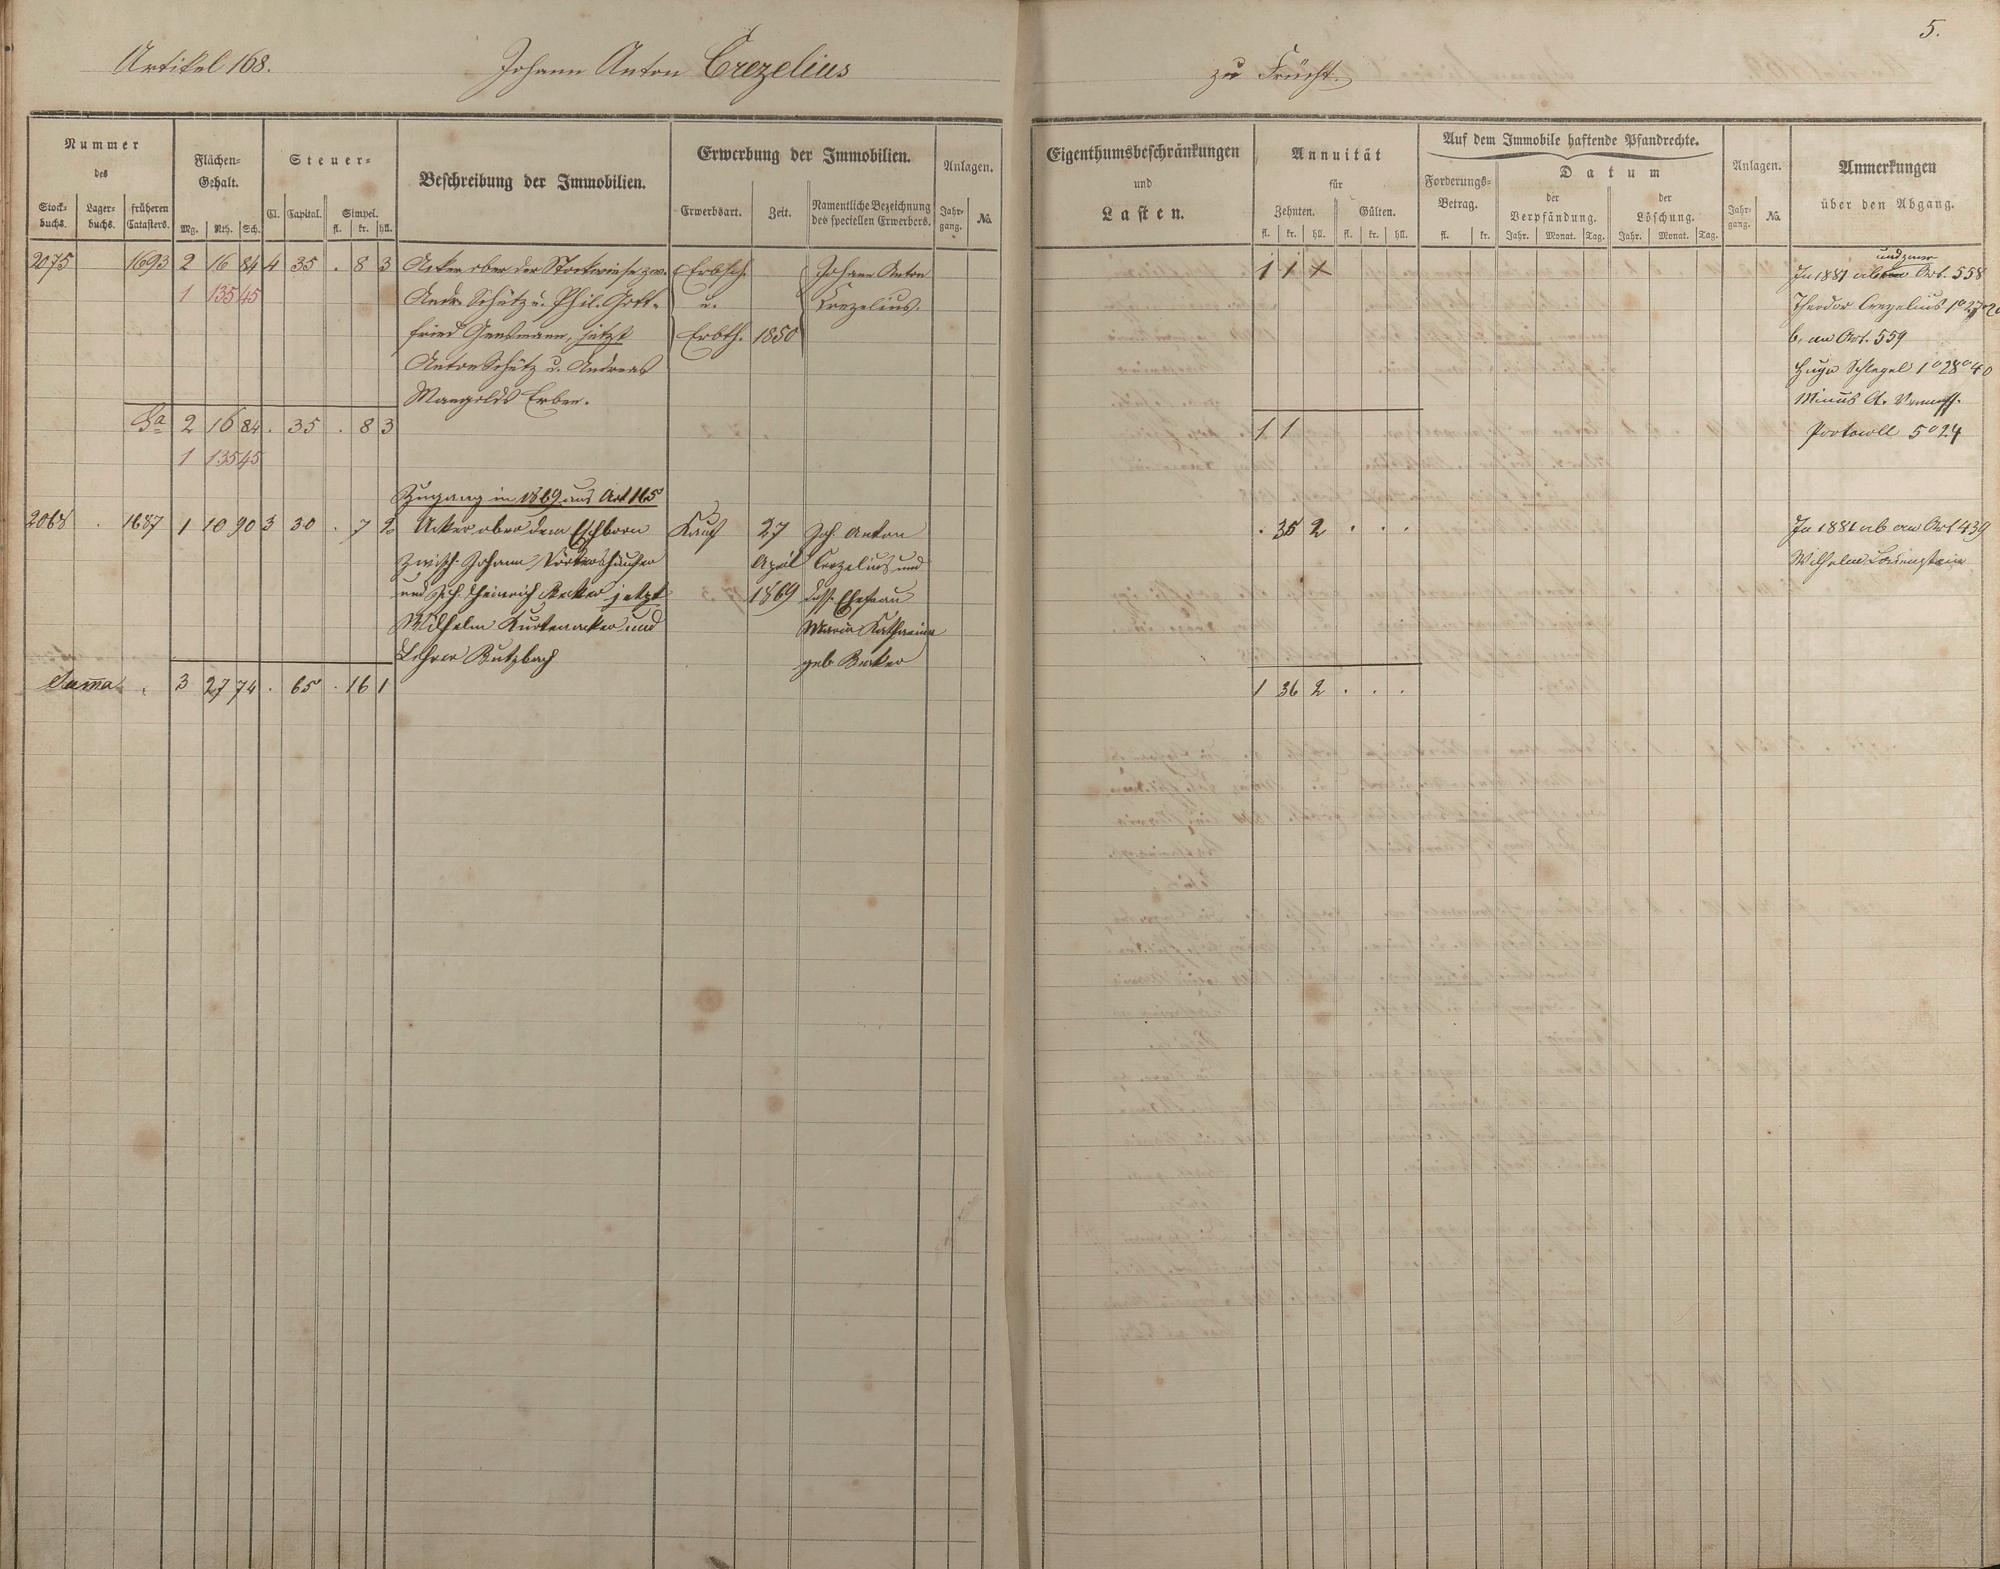 5.
Artikel 168. Johann Anton Crezelius zu Frücht.
Nummer des
Stock-buchs. Lager-buchs. früheren Catasters.
Flächen-Gehalt.
Mg. Rth. Sch.
Steuer-
Cl. Capital. Simpel.
fl. kr. hll.
Beschreibung der Immobilien.
Erwerbung der Immobilien.
Erwerbsart. Zeit. Namentliche Bezeichnung des speciellen Erwerbers.
Anlagen.
Jahr-gang. No.
Eigenthumsbeschränkungen
und
Lasten.
Annuität
für
Zehnten. Gülten.
fl. kr. hll. fl. kr. hll.
Auf dem Immobile haftende Pfandrechte.
Forderungs-Betrag.
fl. kr.
Datum
der Verpfändung. der Löschung.
Jahr. Monat. Tag. Jahr. Monat. Tag.
Anlagen.
Jahr-gang. No.
Anmerkungen
über den Abgang.
2075 1693 2 16 84 4 35 . 8 3 Acker ober der Stockwiese zw. Erbsch. Johann Anton 1 1 x
1 135 45 Andr. Schütz u. Phil. Gott- u. Crezelius.
fried Gensmann, jetzt Erbth. 1850
Anton Schütz u. Andreas
Mangolds Erben.
In 1881 ab Art. 558
Theodor Crezelius
b, an Art. 559
Hugo Schlegel 1° 28° 40
Minus A.
Protocoll 5° 24
Sa 2 16 84 . 35 . 8 3 1 1
1 135 45
Zugang in 1869 aus Art 165
2068 . 1687 1 10 90 3 30 . 7 2 Acker ober dem Eschborn Kauf 27 Joh. Anton . 35 2 . . . In 1881 ab an Art 439
zwisch. Johann April Crezelius und Wilhelm Löwenstein
und Joh. Heinrich Becker jetzt 1869 dess. Ehefrau
Wilhelm Kurtenacker und Maria Katharina
Lehrer Butzbach geb. Becker
Suma . 3 27 74 . 65 . 16 1 1 36 2 . . .